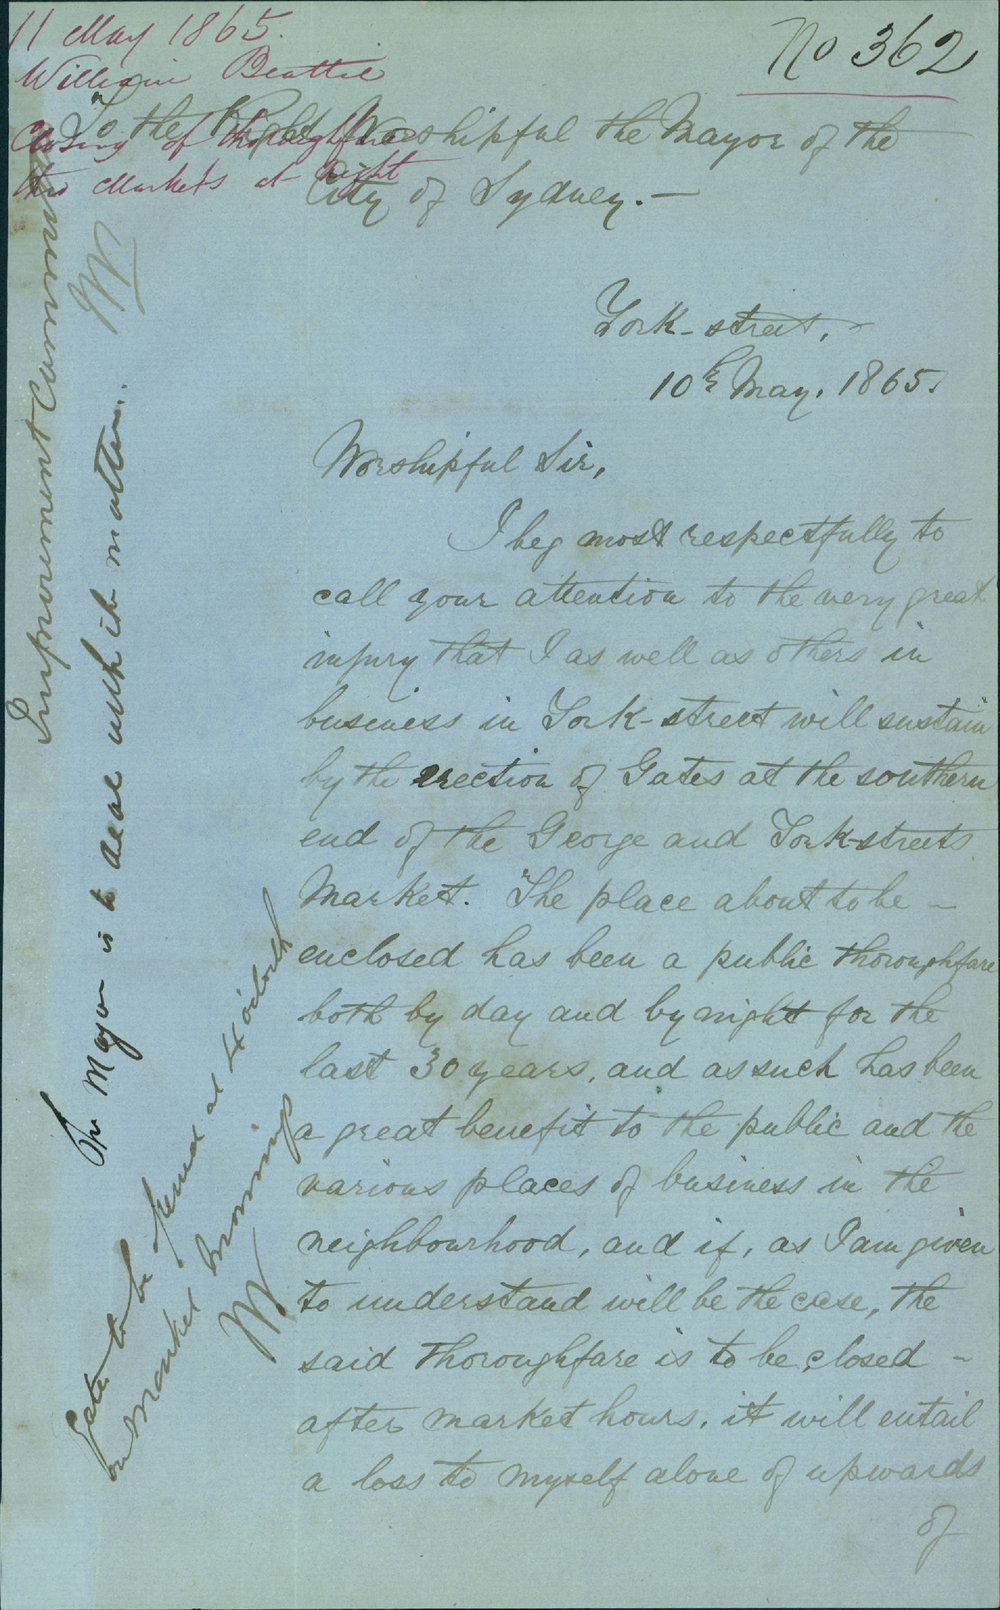 11 May 1865.
William Beattie
Closing of thoroughfare
thro Markets at Night
No 362
To the Right Worshipful the Mayor of the
City of Sydney. —
York-street, -
10th May. 1865.
Worshipful Sir,
I beg most respectfully to
call your attention to the very great
injury that I as well as others in
business in York-street will sustain
by the erection of Gates at the southern
end of the George and York-streets
Market. The place about to be -
enclosed has been a public thoroughfare
both by day and by night for the
last 30 years, and as such has been
a great benefit to the public and the
various places of business in the
neighbourhood, and if, as I am given
to understand will be the case, the
said thoroughfare is to be closed -
after market hours, it will entail
a loss to myself alone of upwards
of
Improvement Committee
The Mayor is to deal with it matter.
Gates to be opened at 4 o'clock
on Market mornings